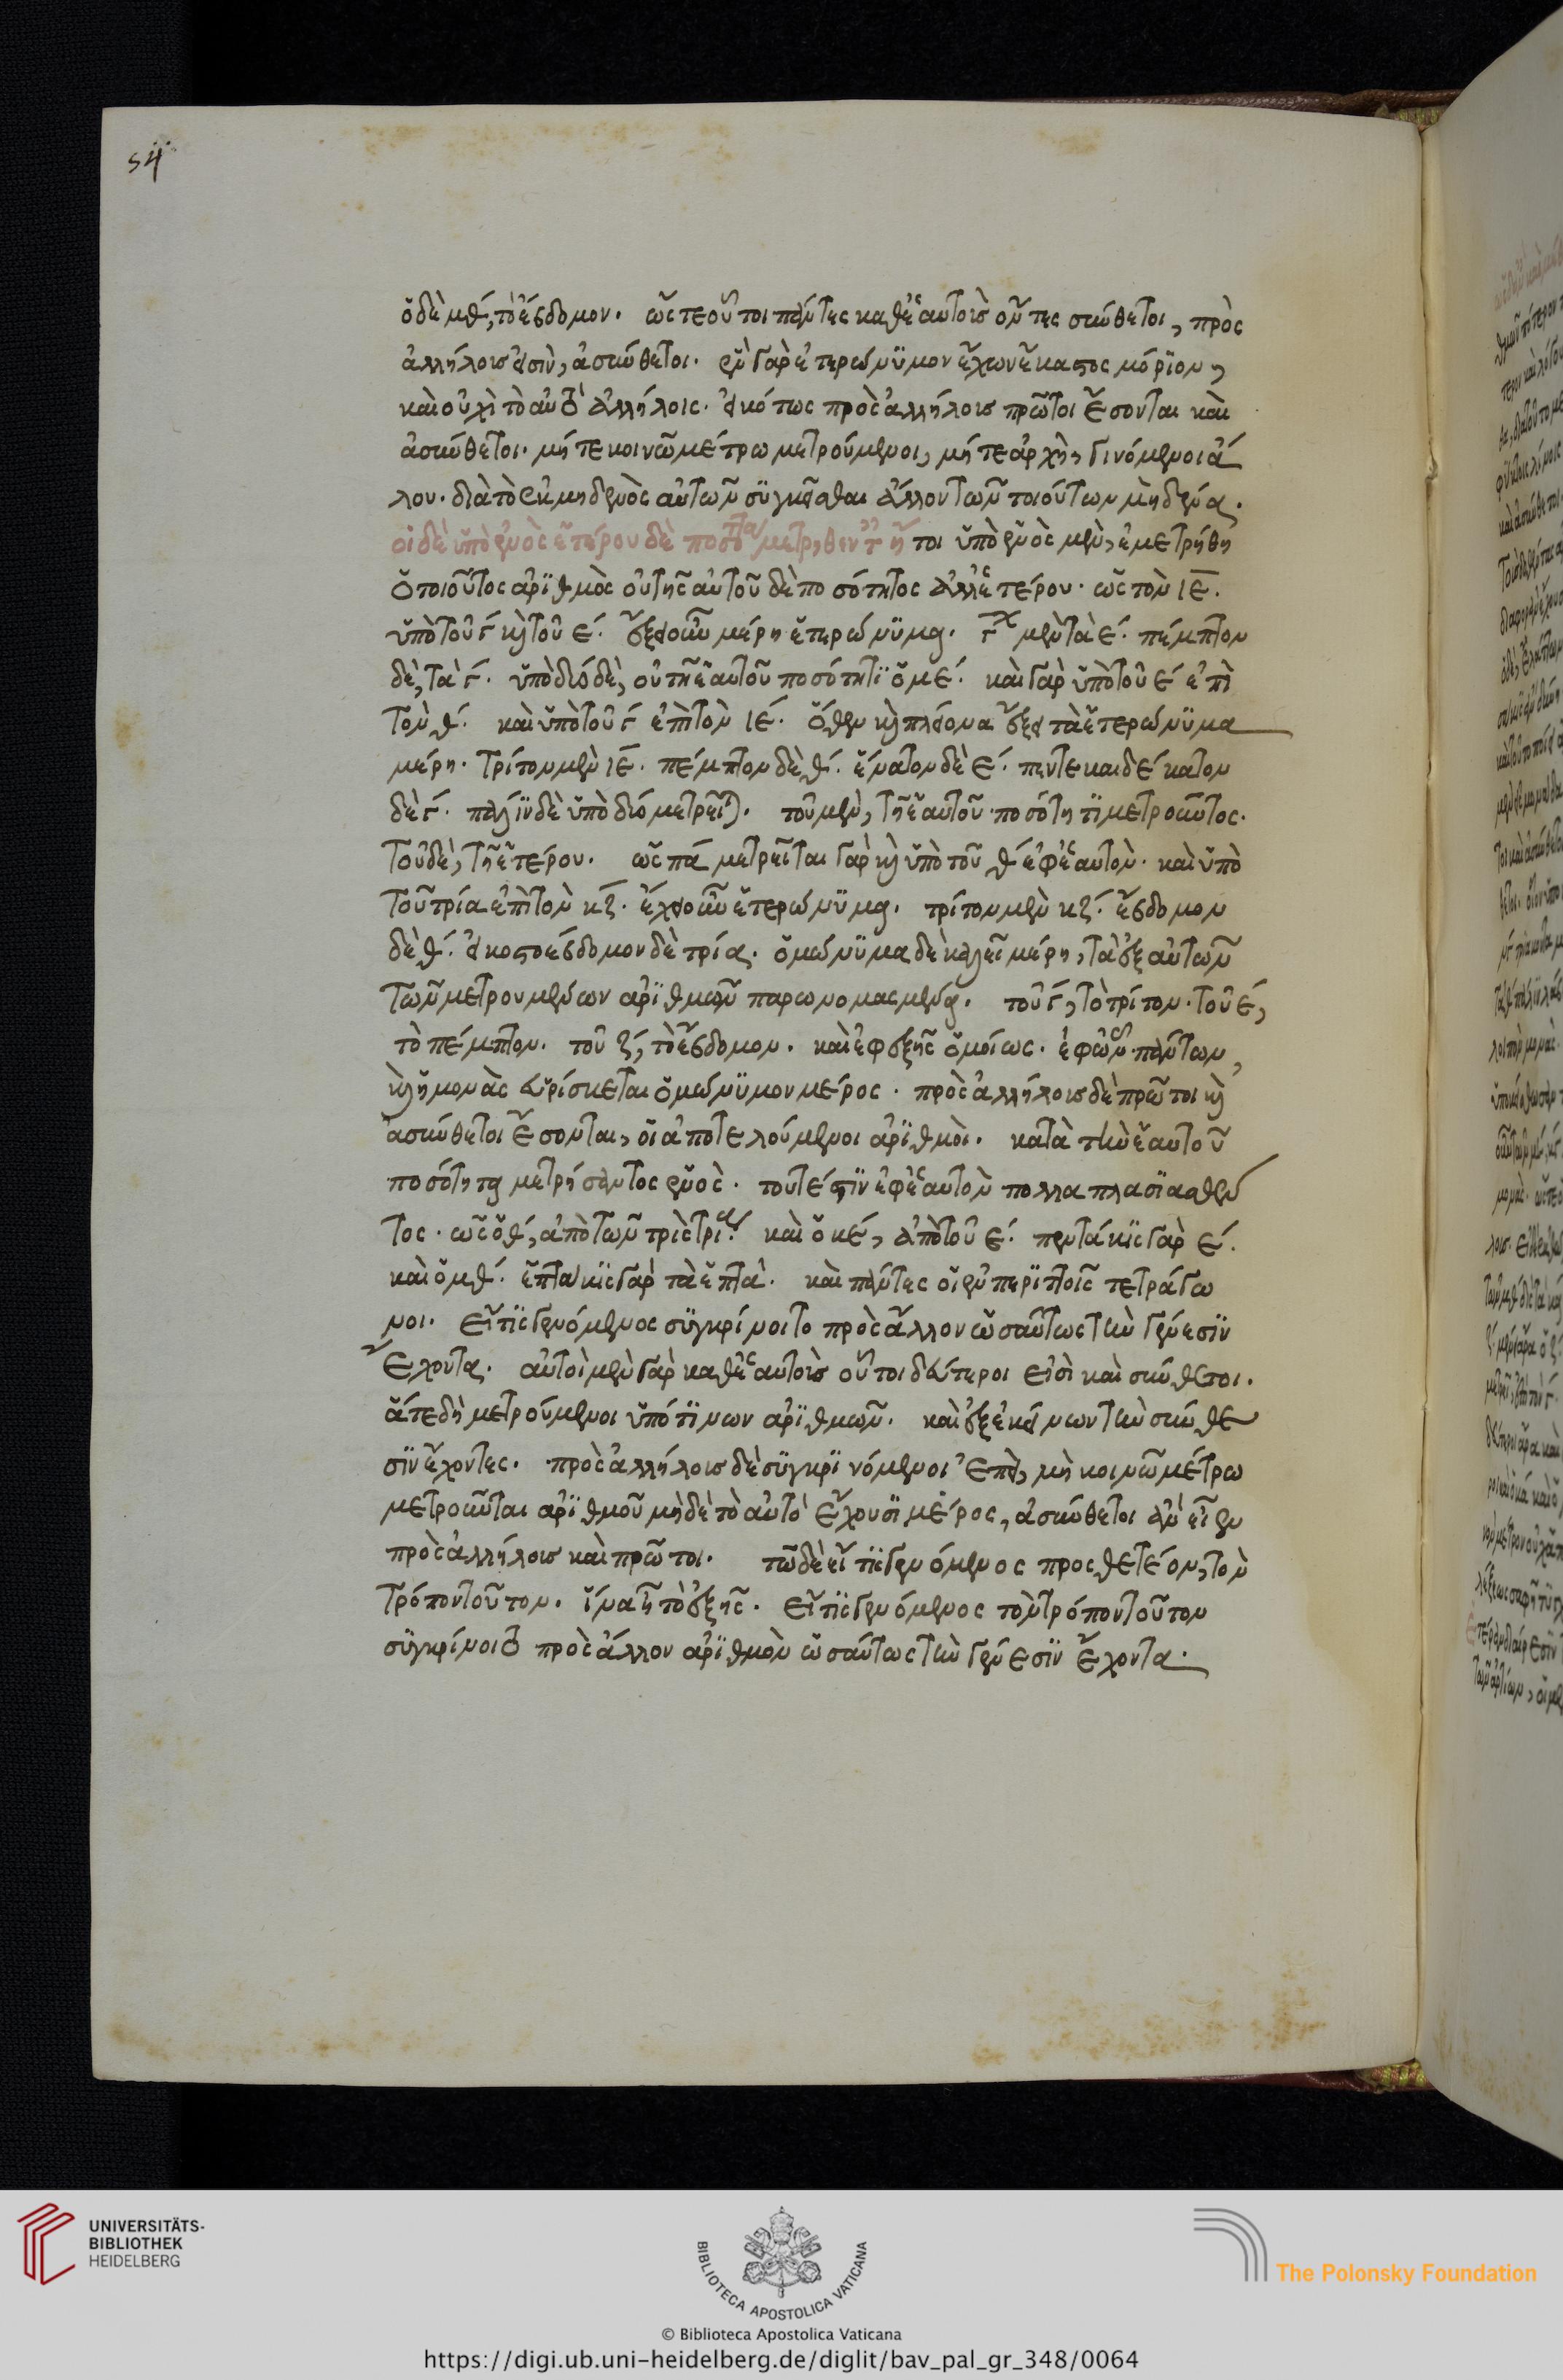 54
ὁ δὲ μθ, τὸ ἕβδομον. ὥστε οὗτοι πάντες καθ' ἑαυτοὺς ὄντες σύνθετοι, πρὸς
ἀλλήλους εἰσὶν, ἀσύνθετοι. ἓν γὰρ ἑτερώνυμον ἔχων ἕκαστος μόριον,
καὶ οὐχὶ τὸ αὐτὸ ἀλλήλοις. εἰκότως πρὸς ἀλλήλους πρῶτοι ἔσονται καὶ
ἀσύνθετοι. μήτε κοινῶ μέτρω μετρούμενοι, μήτε ἀρχὴν γινόμενοι ἄλ
λου. διὰ τὸ ἐκ μηδενὸς αὐτῶν συγκεῖσθαι ἄλλον τῶν τοιούτων μηδένα.
οἱ δὲ ὑπὸ ἑνὸς ἑτέρου δὲ ποσότητα μετρηθεντ ἤ τοι ὑπὸ ἑνὸς μὲν, ἐμετρήθη
ὁ τοιοῦτος ἀριθμὸς οὐ τῆς αὐτοῦ δὲ ποσότητος ἀλλ' ἑτέρου. ὡς τὸν ιε.
ὑπὸ τοῦ γ καὶ τοῦ ε. ἕξει οὖν μέρη ἑτερώνυμα. μὲν τὰ ε. πέμπτον
δὲ, τὰ γ. ὑπὸ δύο δὲ, οὐ τῆ ἑαυτοῦ ποσότητι ὁ με. καὶ γὰρ ὑπὸ τοῦ ε ἐπὶ
τὸν θ. καὶ ὑπὸ τοῦ γ ἐπὶ τὸν ιε. ὅθεν καὶ πλείονα ἕξει τὰ ἑτερώνυμα
μέρη. τρίτον μὲν ιε. πέμπτον δὲ θ. ἔνατον δὲ ε. πεντεκαιδέκατον
δὲ γ. πάλιν δὲ ὑπὸ δύο μετρεῖται. τοῦ μὲν, τῆ ἑαυτοῦ ποσότητι μετροῦντος.
τοῦ δὲ, τῆ ἑτέρου. ὡς πα μετρεῖται γὰρ καὶ ὑπὸ τοῦ θ ἐφ' ἑαυτὸν. καὶ ὑπὸ
τοῦ τρία ἐπὶ τὸν κζ. ἔχει οὖν ἑτερώνυμα. τρίτον μὲν κζ. ἕβδομον
δὲ θ. εἰκοστοέβδομον δὲ τρία. ὁμώνυμα δὲ καλεῖ μέρη, τὰ ἐξ αὐτῶν
τῶν μετρουμένων ἀριθμῶν παρωνομασμένα. τοῦ γ, τὸ τρίτον. τοῦ ε,
τὸ πέμπτον. τοῦ ζ, τὸ ἕβδομον. καὶ ἐφεξῆς ὁμοίως. ἐφ' ὧν πάντων,
καὶ ἡ μονὰς εὑρίσκεται ὁμώνυμον μέρος. πρὸς ἀλλήλους δὲ πρῶτοι καὶ
ἀσύνθετοι ἔσονται, οἱ ἀποτελούμενοι ἀριθμοὶ. κατὰ τὴν ἑαυτοῦ
ποσότητα μετρήσαντος ἑνὸς. τουτέστιν ἐφ' ἑαυτὸν πολλαπλασιασθέν
τος. ὡς ὁ θ, ἀπὸ τῶν τρὶς τρία. καὶ ὁ κε, ἀπὸ τοῦ ε. πεντάκις γὰρ ε.
καὶ ὁ μθ. ἑπτάκις γὰρ τὰ ἑπτὰ. καὶ πάντες οἱ ἐν περιττοῖς τετράγω
νοι. εἴ τις γενόμενος συγκρίνοιτο πρὸς ἄλλον ὡσαύτως τὴν γένεσιν
ἔχοντα. αὐτοὶ μὲν γὰρ καθ' ἑαυτοὺς οὗτοι δεύτεροι εἰσὶ καὶ σύνθετοι.
ἅτε δὴ μετρούμενοι ὑπό τινων ἀριθμῶν. καὶ ἐξ ἐκείνων τὴν σύνθε
σιν ἔχοντες. πρὸς ἀλλήλους δὲ συγκρινόμενοι ἐπεὶ, μὴ κοινῶ μέτρω
μετροῦνται ἀριθμοῦ μὴ δὲ τὸ αὐτὸ ἔχουσι μέρος, ἀσύνθετοι ἂν εἶεν
πρὸς ἀλλήλους καὶ πρῶτοι. τῶ δὲ εἴ τις γενόμενος προσθετέον, τὸν
τρόπον τοῦτον. ἵνα ἦ τὸ ἑξῆς. εἴ τις γενόμενος τὸν τρόπον τοῦτον
συγκρίνοιτο πρὸς ἄλλον ἀριθμὸν ὡσαύτως τὴν γένεσιν ἔχοντα.
UNIVERSITÄTS-
BIBLIOTHEK
HEIDELBERG
BIBLIOTECA APOSTOLICA VATICANA
The Polonsky Foundation
© Biblioteca Apostolica Vaticana
https://digi.ub.uni-heidelberg.de/diglit/bav_pal_gr_348/0064